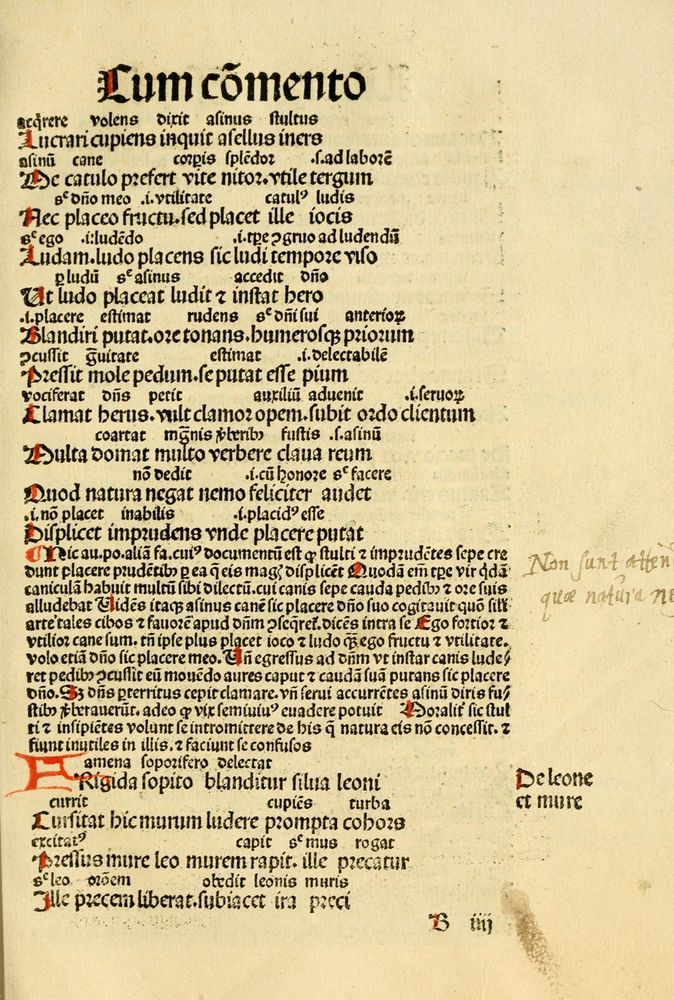 Cum cōmento
acq̄rere volens dixit asinus stultus
Lucrari cupiens inquit asellus iners
asinū cane corpis splēdor .s. ad laborē
Me catulo prefert vite nitor. vtile tergum
sꝫ dño meo .i. vtilitate catulꝰ ludis
Nec placeo fructu. sed placet ille iocis
sꝫ ego .i: ludēdo .i. tꝑe ꝯgruo ad ludendū
Ludam. ludo placens sic ludi tempore viso
ꝑ ludū sꝫ asinus accedit dño
Ut ludo placeat ludit ⁊ instat hero
.i. placere estimat rudens sꝫ dñi sui anterioꝝ
Blandiri putat. ore tonans. humerosqꝫ priorum
ꝯcussit grauitate estimat .i. delectabilē
Pressit mole pedum. se putat esse pium
vociferat dñs petit auxiliū aduenit .i. seruoꝝ
Clamat herus. vult clamor opem. subit ordo clientum
coartat mgnis ṽberibꝫ fustis .s. asinū
Multa domat multo verbere claua reum
nō dedit .i. cū honore sꝫ facere
Quod natura negat nemo feliciter audet
.i. nō placet inabilis .i. placidꝰ esse
Displicet imprudens vnde placere putat
Hic au. po. aliā fa. cuiꝰ documentū est ꝙ stulti ⁊ imprudētes sepe cre
dunt placere prudētibꝫ ꝑ ea q̄ eis magꝭ displicēt Quodā em̄ tꝑe vir q̄dā
caniculam habuit multū sibi dilectū. cui canis sepe cauda pedibꝫ ⁊ ore suis
alludebat Uidēs itaqꝫ asinus canē sic placere dño suo cogitauit quō sili
arte tales cibos ⁊ fauorē apud dñm ꝯseq̄ret. dicēs intra se Ego fortior ⁊
vtilior cane sum. tñ ipse plus placet ioco ⁊ ludo q̄ꝫ ego fructu ⁊ vtilitate.
volo etiā dño sic placere meo. Uñ egressus ad dñm vt instar canis lude⸗
ret pedibꝫ ꝯcussit eū mouēdo aures caput ⁊ caudā suā putans sic placere
dño. Sꝫ dñs ꝑterritus cepit clamare. vñ serui accurrētes asinū diris fu⸗
stibꝫ ṽberauerūt. adeo ꝙ vix semiuiuꝰ euadere potuit Moralit̄ sic stul
ti ⁊ insipiētes volunt se intromittere de his q̄ natura eis nō concessit. ⁊
fiunt inutiles in illis. ⁊ faciunt se confusos
Non sunt atten
quæ natura ne
amena soporifero delectat
FRigida sopito blanditur silua leoni
De leone
et mure
currit cupiēs turba
Cursitat hic murum ludere prompta cohors
excitatꝰ capit sꝫ mus rogat
Pressus mure leo murem rapit. ille precatur
sꝫ leo orōem obedit leonis muris
Ille precem liberat. subiacet ira preci
B iiij